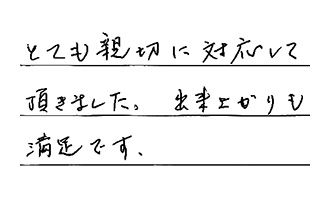 とても親切に対応して
頂きました。出来上がりも
満足です。